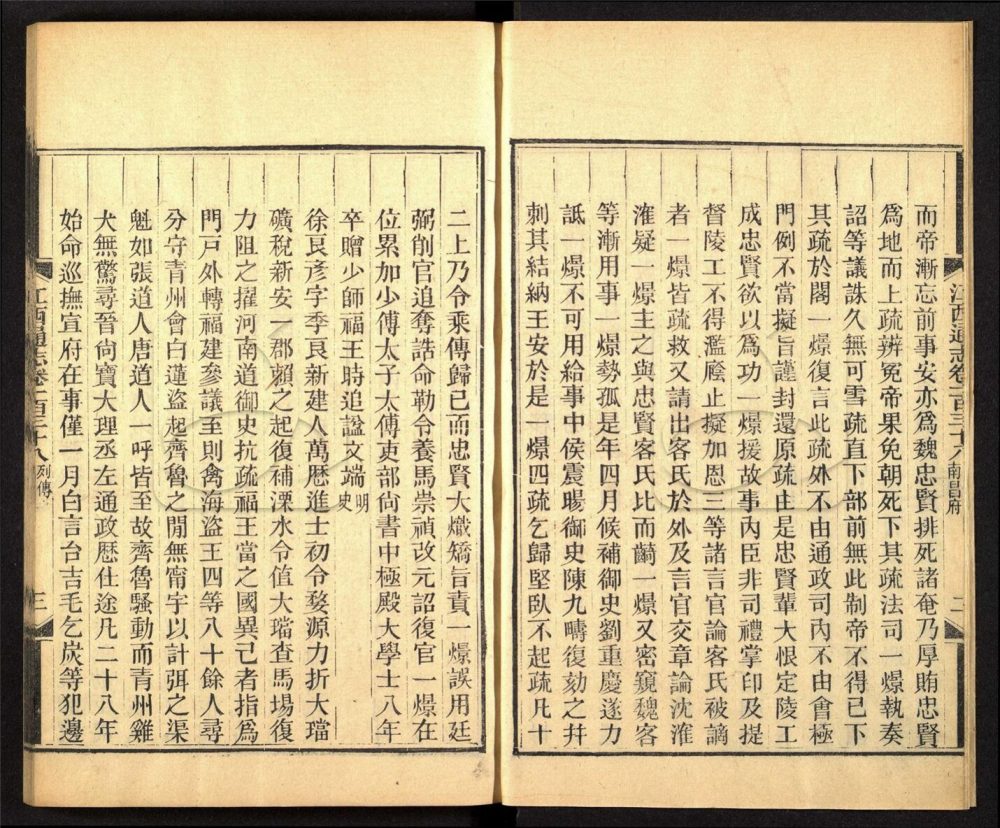 而帝漸忘前事安亦爲魏忠賢排死諸奄乃厚賄忠賢
爲地而上疏辨冤帝果免朝死下其疏法司一燝執奏
詔等議誅久無可雪疏直下部前無此制帝不得已下
其疏於閣一燝復言此疏外不由通政司內不由會極
門例不當擬旨謹封還原疏由是忠賢輩大恨定陵工
成忠賢欲以爲功一燝援故事內臣非司禮掌印及提
督陵工不得濫廕止擬加恩三等諸言官論客氏被謫
者一燝皆疏救又請出客氏於外及言官交章論沈㴶
㴶疑一燝主之與忠賢客氏比而齮一燝又密窺魏客
等漸用事一燝勢孤是年四月候補御史劉重慶遂力
詆一燝不可用給事中侯震暘御史陳九疇復劾之幷
刺其結納王安於是一燝四疏乞歸堅臥不起疏凡十
江西通志卷一百三十八 南昌府 二
二上乃令乘傳歸已而忠賢大熾矯旨責一燝誤用廷
弼削官追奪誥命勒令養馬崇禎改元詔復官一燝在
位累加少傅太子太傅吏部尚書中極殿大學士八年
卒贈少師福王時追諡文端明史
徐良彥字季良新建人萬厯進士初令婺源力折大璫
礦稅新安一郡賴之起復補溧水令值大璫查馬場復
力阻之擢河南道御史抗疏福王當之國異己者指爲
門戸外轉福建參議至則禽海盜王四等八十餘人尋
分守青州會白蓮盜起齊魯之閒無甯宇以計弭之渠
魁如張道人唐道人一呼皆至故齊魯騷動而青州雞
犬無驚尋晉尚寶大理丞左通政厯仕途凡二十八年
始命巡撫宣府在事僅一月白言台吉毛乞炭等犯邊
江西通志卷一百三十八 列傳 三